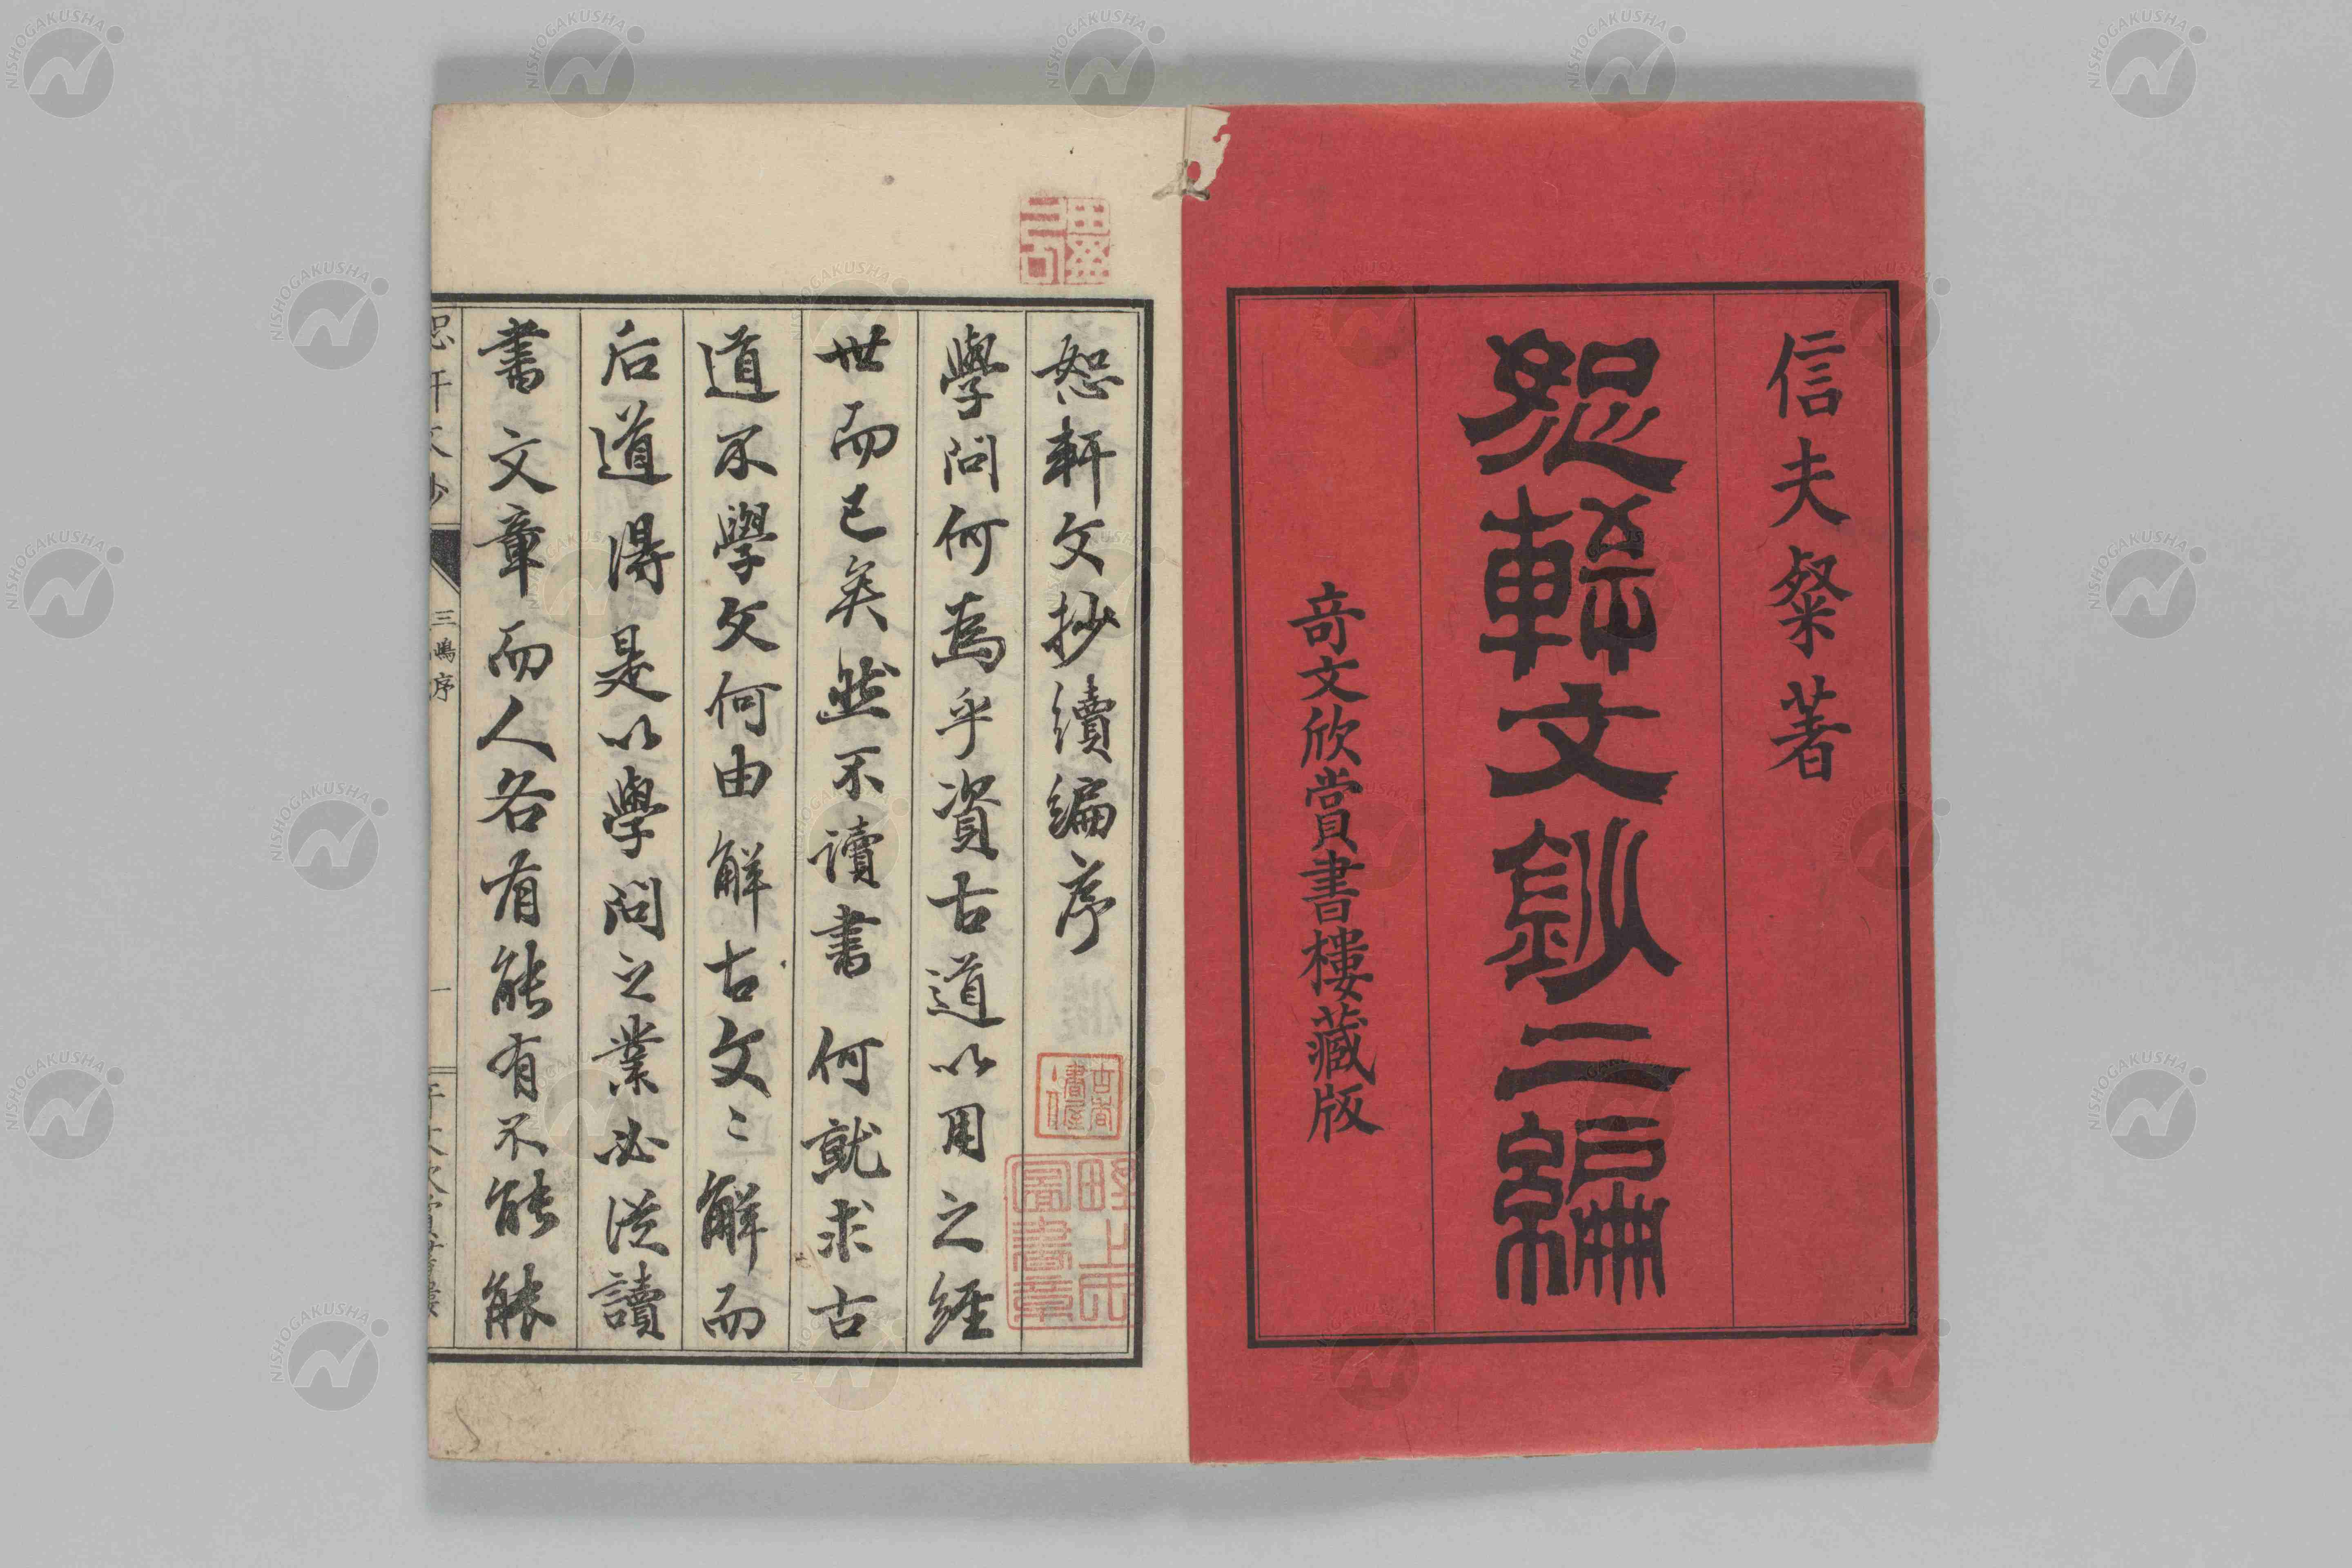 信夫粲著
恕軒文鈔二編
奇文欣賞書樓藏版
恕軒文抄續編序
學問何爲乎資古道以用之經
世而已矣然不讀書何就求古
道不學文何由解古文〻解而
后道得是以學問之業必從讀
書文章而人各有能有不能能
三嶋序
一
NISHOGAKUSHA